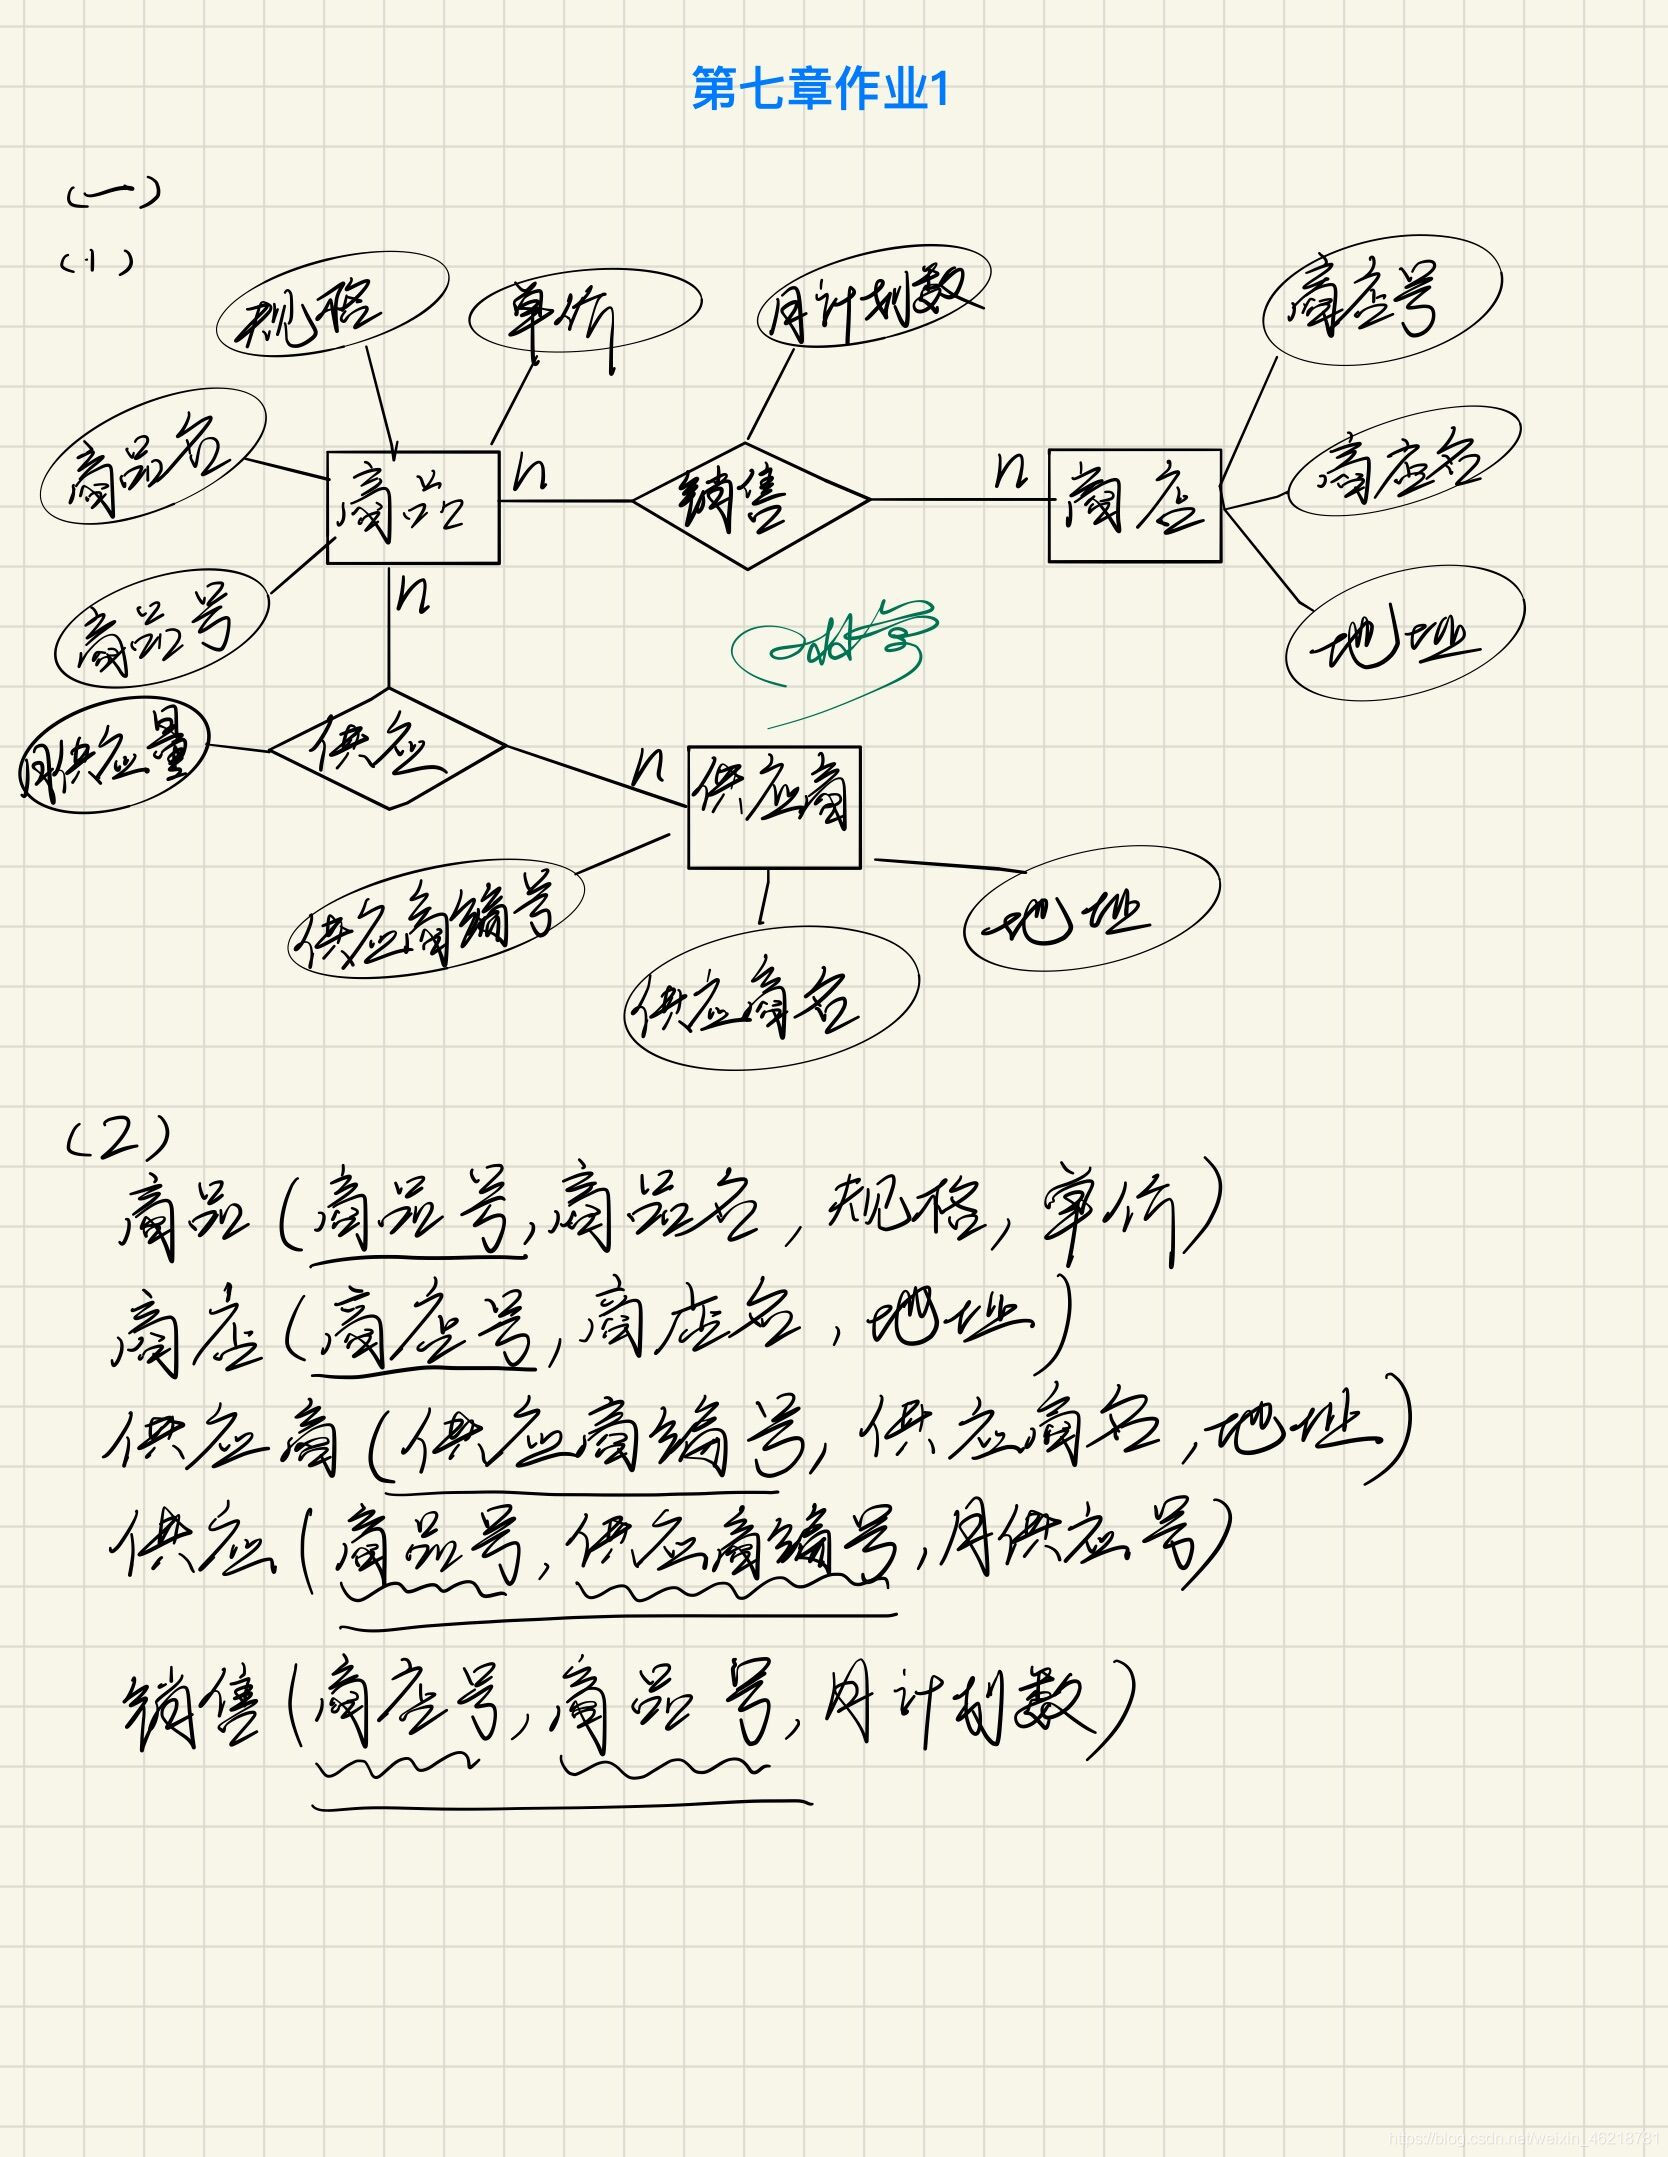 第七章作业1
(一)
(1)
规格
单价
月计划数
商店号
商品名
商店名
商品
n
销售
n
商店
商品号
n
地址
月供应量
供应
n
供应商
供应商编号
地址
供应商名
(2)
商品(商品号,商品名,规格,单价)
商店(商店号,商店名,地址)
供应商(供应商编号,供应商名,地址)
供应(商品号,供应商编号,月供应号)
销售(商店号,商品号,月计划数)
https://blog.csdn.net/weixin_46218781